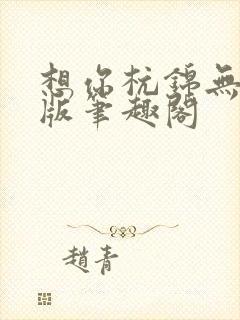 想你杭錦無
版筆趣閣
趙青